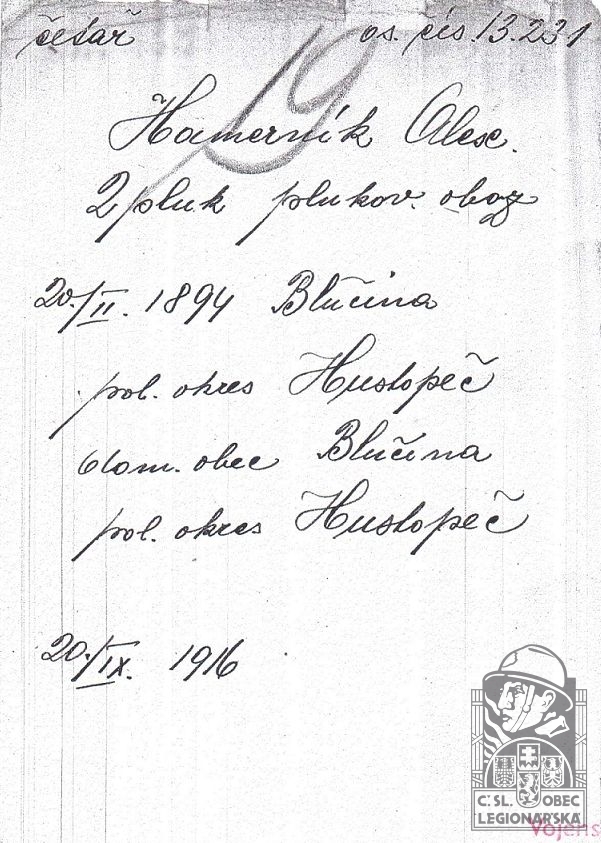 četař os. čís. 13.231
19
Hamerník Alex.
2 pluk plukov. oboz
20./II. 1894 Blučina
pol. okres Hustopeč
dom. obec Blučina
pol. okres Hustopeč
20./IX. 1916
Č. SL. OBEC
LEGIONÁŘSKÁ
Vojens